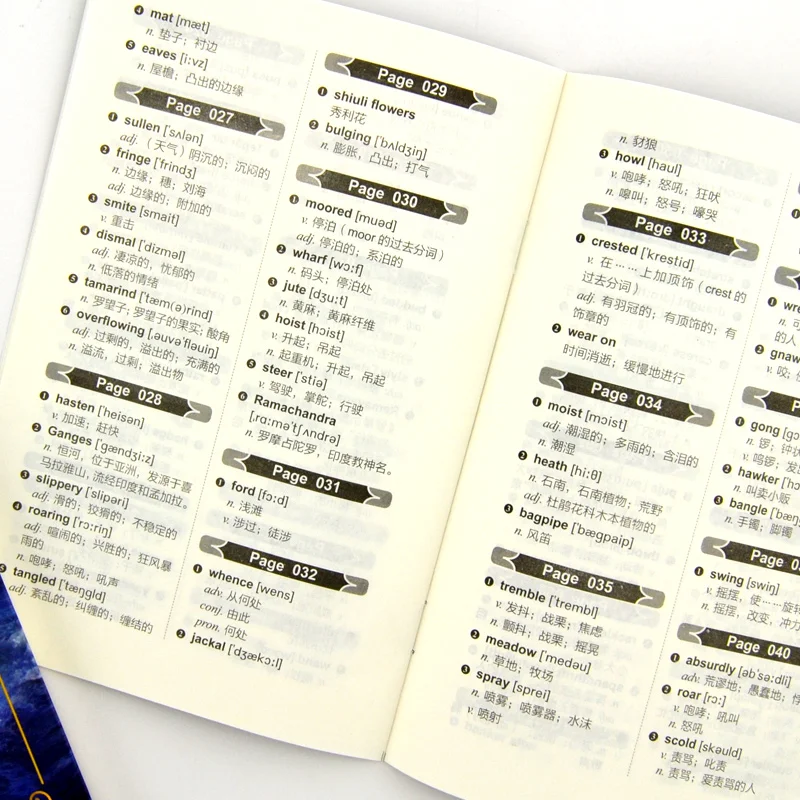 ❹ mat [mæt]
n. 垫子；衬边
❺ eaves [i:vz]
n. 屋檐；凸出的边缘
Page 027
❶ sullen [ˈsʌlən]
adj.（天气）阴沉的；沉闷的
❷ fringe [ˈfrindʒ]
n. 边缘；穗；刘海
adj. 边缘的；附加的
❸ smite [smait]
v. 重击
❹ dismal [ˈdizməl]
adj. 凄凉的，忧郁的
n. 低落的情绪
❺ tamarind [ˈtæm(ə)rind]
n. 罗望子；罗望子的果实；酸角
❻ overflowing [ˌəuvəˈfləuiŋ]
adj. 过剩的，溢出的；充满的
n. 溢流，过剩；溢出物
Page 028
❶ hasten [ˈheisən]
v. 加速；赶快
❷ Ganges [ˈgændʒi:z]
n. 恒河，位于亚洲，发源于喜
马拉雅山，流经印度和孟加拉。
❸ slippery [ˈslipəri]
adj. 滑的；狡猾的；不稳定的
❹ roaring [ˈrɔ:riŋ]
adj. 喧闹的；兴胜的；狂风暴
雨的
n. 咆哮；怒吼，吼声
❺ tangled [ˈtæŋgld]
adj. 紊乱的；纠缠的；缠结的
Page 029
❶ shiuli flowers
秀利花
❷ bulging [ˈbʌldʒiŋ]
n. 膨胀，凸出；打气
Page 030
❶ moored [muəd]
v. 停泊（moor 的过去分词）
adj. 停泊的；系泊的
❷ wharf [wɔ:f]
n. 码头；停泊处
❸ jute [dʒu:t]
n. 黄麻；黄麻纤维
❹ hoist [hɔist]
v. 升起；吊起
n. 起重机；升起，吊起
❺ steer [ˈstiə]
v. 驾驶，掌舵；行驶
❻ Ramachandra
[ˌrɑ:məˈtʃʌndrə]
n. 罗摩占陀罗，印度教神名。
Page 031
❶ ford [fɔ:d]
n. 浅滩
v. 涉过；徒涉
Page 032
❶ whence [wens]
adv. 从何处
conj. 由此
pron. 何处
❷ jackal [ˈdʒækɔ:l]
n. 豺狼
❸ howl [haul]
v. 咆哮；怒吼；狂吠
n. 嗥叫；怒号；嚎哭
Page 033
❶ crested [ˈkrestid]
v. 在……上加顶饰（crest 的
过去分词）
adj. 有羽冠的；有顶饰的；有
饰章的
❷ wear on
时间消逝；缓慢地进行
Page 034
❶ moist [mɔist]
adj. 潮湿的；多雨的；含泪的
n. 潮湿
❷ heath [hi:θ]
n. 石南，石南植物；荒野
adj. 杜鹃花科木本植物的
❸ bagpipe [ˈbægpaip]
n. 风笛
Page 035
❶ tremble [ˈtrembl]
v. 发抖；战栗；焦虑
n. 颤抖；战栗；摇晃
❷ meadow [ˈmedəu]
n. 草地；牧场
❸ spray [sprei]
n. 喷雾；喷雾器；水沫
v. 喷射
❶
n. 可
的人
❷ gnaw
v. 咬；
❶ gong [gɔ
n. 锣；钟
v. 鸣锣；发
❷ hawker [hɔ
n. 叫卖小贩
❸ bangle [ˈbæŋ
n. 手镯；脚镯
❶ swing [swiŋ]
v. 摇摆，使……旋转
n. 摇摆，改变，冲力
Page 040
❶ absurdly [əbˈsə:dli]
adv. 荒谬地；愚蠢地；
❷ roar [rɔ:]
v. 咆哮；吼叫
n. 怒吼
❸ scold [skəuld]
v. 责骂；叱责
n. 责骂；爱责骂的人